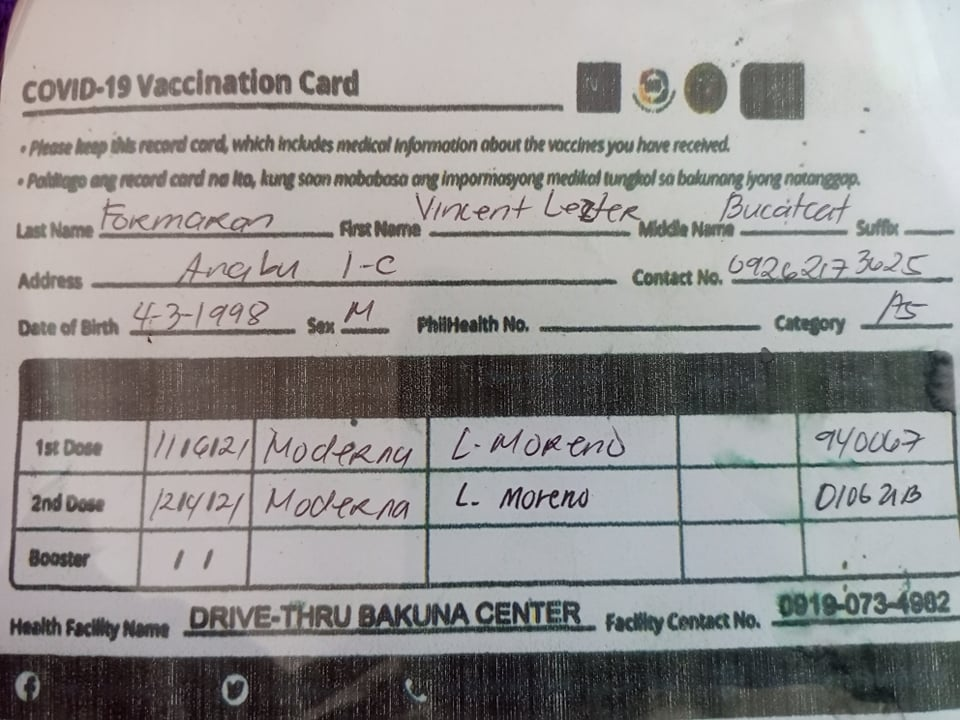 COVID-19 Vaccination Card
• Please keep this record card, which includes medical information about the vaccines you have received.
• Pakitago ang record card na ito, kung saan mababasa ang impormasyong medikal tungkol sa bakunang iyong natanggap.
Last Name Formaran First Name Vincent Lezter Middle Name Bucatcat Suffix
Address Anabu 1-C Contact No. 09262173625
Date of Birth 4-3-1998 Sex M PhilHealth No. Category A5
1st Dose 11/16/21 Moderna L. Moreno 940067
2nd Dose 12/14/21 Moderna L. Moreno 010621B
Booster / /
Health Facility Name DRIVE-THRU BAKUNA CENTER Facility Contact No. 0919-073-4982